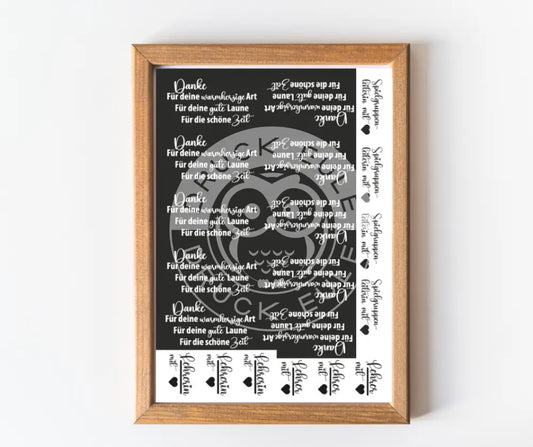 Danke
Für deine warmherzige Art
Für deine gute Laune
Für die schöne Zeit
Danke
Für deine warmherzige Art
Für deine gute Laune
Für die schöne Zeit
Danke
Für deine warmherzige Art
Für deine gute Laune
Für die schöne Zeit
Danke
Für deine warmherzige Art
Für deine gute Laune
Für die schöne Zeit
Danke
Für deine warmherzige Art
Für deine gute Laune
Für die schöne Zeit
Danke
Für deine warmherzige Art
Für deine gute Laune
Für die schöne Zeit
Danke
Für deine warmherzige Art
Für deine gute Laune
Für die schöne Zeit
Danke
Für deine warmherzige Art
Für deine gute Laune
Für die schöne Zeit
Danke
Für deine warmherzige Art
Für deine gute Laune
Für die schöne Zeit
Danke
Für deine warmherzige Art
Für deine gute Laune
Für die schöne Zeit
Spielgruppen-
leiterin mit
Spielgruppen-
leiterin mit
Spielgruppen-
leiterin mit
Spielgruppen-
leiterin mit
Lehrerin
mit
Lehrerin
mit
Lehrerin
mit
Lehrer
mit
Lehrer
mit
Lehrer
mit
DRUCK EULE
DRUCK EULE